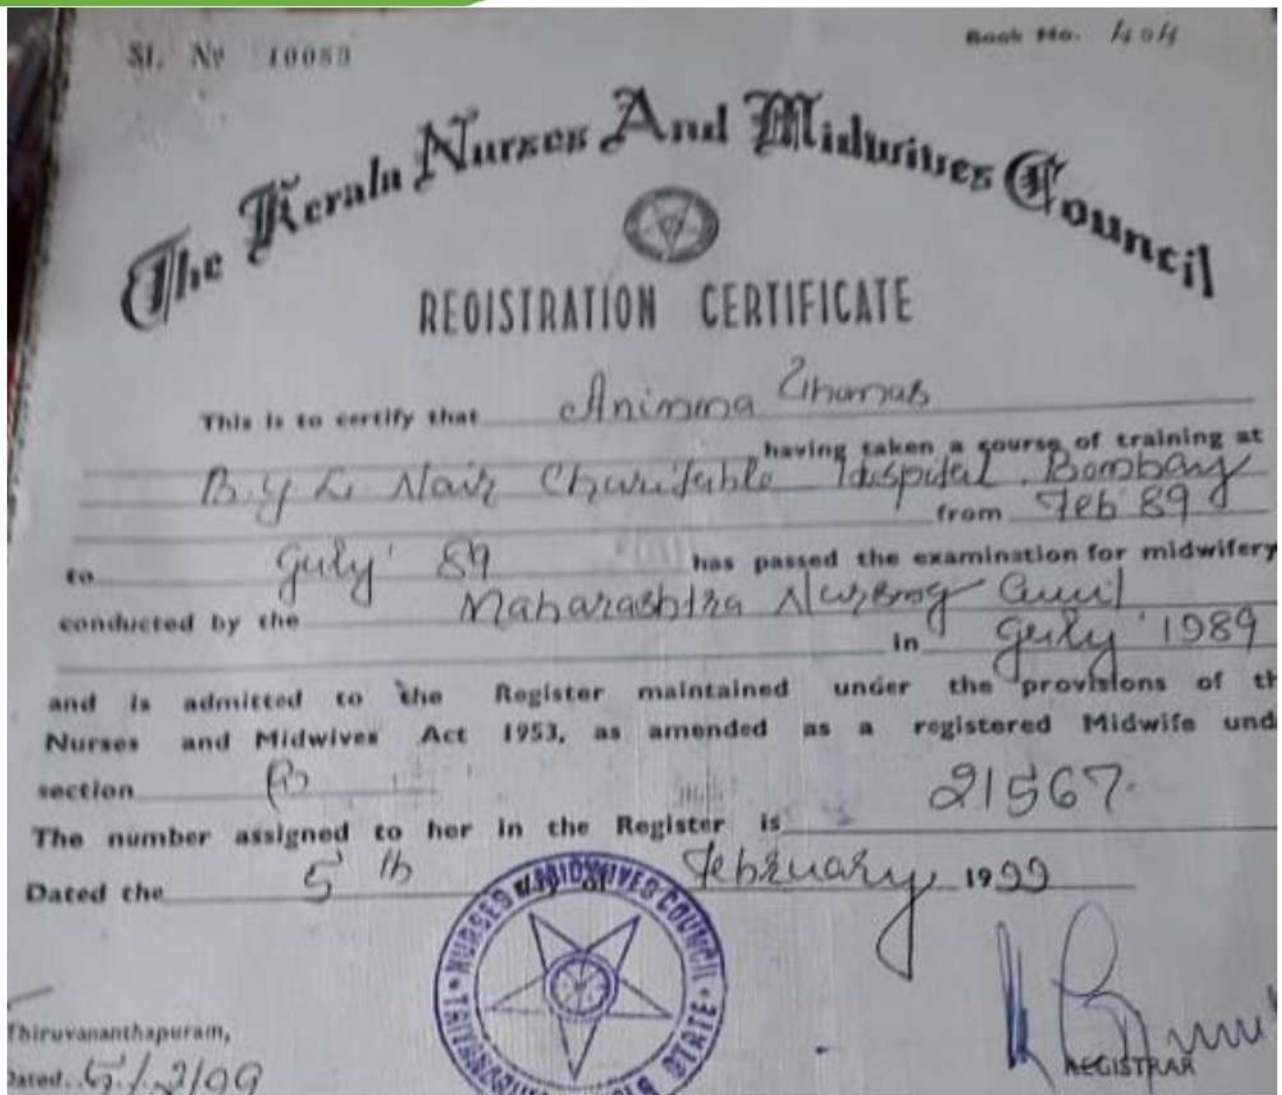 Sl. No 10083
Book No. 404
The Kerala Nurses And Midwives Council
REGISTRATION CERTIFICATE
This is to certify that Animma Thomas
having taken a course of training at
B.Y L Nair Charitable Hospital, Bombay
from Feb 89
to July' 89 has passed the examination for midwifery
conducted by the Maharashtra Nursing
in July '1989
and is admitted to the Register maintained under the provisions of th
Nurses and Midwives Act 1953, as amended as a registered Midwife und
section
21567.
The number assigned to her in the Register is
Dated the 5th day of February 1999
NURSES MIDWIVES COUNCIL STATE
Thiruvananthapuram,
Dated. 5/2/99
REGISTRAR